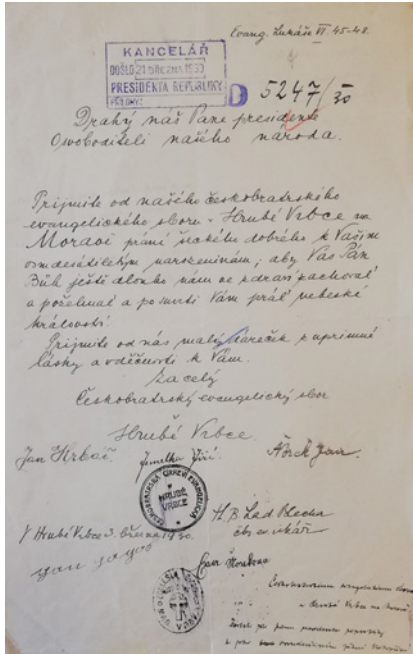 Evang. Lukáše VI. 45-48.
KANCELÁŘ
DOŠLO 21 BŘEZNA 1930
PRESIDENTA REPUBLIKY
PŘÍLOHY:
D 5247/30
Drahý náš Pane presidente
Osvoboditeli našeho národa.
Prijmite od našého českobratrského
evangelického sboru v Hrubé Vrbce na
Moravě přání všeckého dobrého k Vašim
osmdesátiletým narozeninám; aby Vás Pán
Bůh ještě dlouho nám ve zdraví zachoval
a požehnal a po smrti Vám přál nebeské
království.
Prijmite od nás malý dareček z upřimné
lásky a vděčnosti k Vám.
Za celý
Českobratrský evangelický sbor
Hrubé Vrbce.
Jan Hrbač. Zemelka Jiří. Jan
ČESKOBRATRSKÁ CÍRKEV EVANGELICKÁ
HRUBÉ VRBCE
V Hrubé Vrbce 3. března 1930.
H. B. Lad Blecha
vikář
Jan
Českobratrskému evangelickému sboru
v Hrubé Vrbce na Moravě.